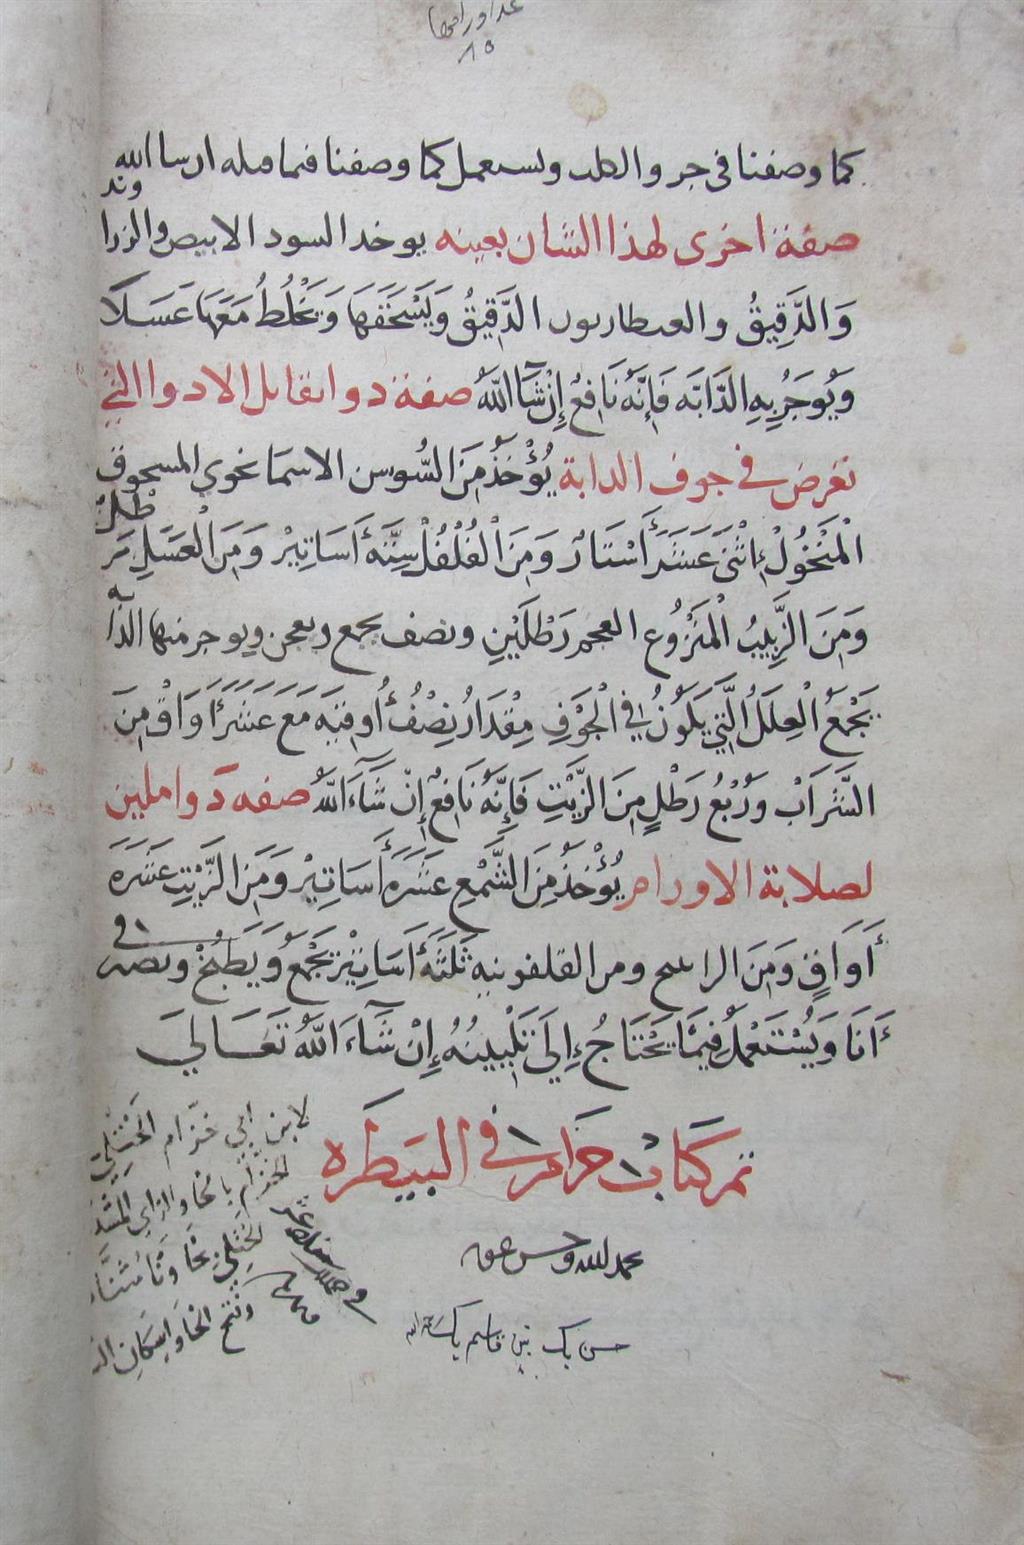 عدد اوراقها
٨٥
كما وصفنا فى جرو الكلب ويستعمل كما وصفنا فيما قبله ان شا الله
صفة اخرى لهذا الشان بعينه يوخد السود الابيض والزراوند
وَالدَّقِيقُ والقنطاريون الدَّقِيقُ وَيَسْحَقَهَا وَيَخْلُطُ مَعَهَا عَسَلاً
وَيُوجَرُ بِهِ الدَّابَّه فَإِنَّهُ نَافِعٌ إِنْ شَآ اللَّهُ صفة دوا يقابل الادوا التي
تعرض في جوف الدابة يُؤْخَذُ مِنَ السُّوسن الاسمانجوي المسحوق
الْمَنْخُولْ اِثْنَىْ عَشَرَ أَسْتَارْ وَمِنَ الْفُلْفُلْ سِتَّهْ أَسَاتِيْرْ وَمِنَ الْعَسَلِ رطل
وَمِنَ الزَّبِيبُ الْمَنْزُوُع العجم رَطْلَيْنِ ونصف يجمع ويعجن ويوجر منها الدابه
بِجْمَعُ الْعِلَلُ الَّتِي يَكُونُ فِي الْجَوْفِ مِقْدَارُ نِصْفُ أُوقيَه مَعَ عَشَرَ أَوَاقْ مِنَ
الشَّرَابْ وَرُبْعُ رَطْلٍ مِنَ الزَّيْتِ فَإِنَّهُ نَافِعٌ إِنْ شَآءَ اللَّهُ صفه دوا ملين
لصلابة الاورام يُؤْخَذُ مِنَ الشَّمْعِ عَشَرَه أَسَاتِيْرْ وَمِنَ الزَّيْتِ عَشَرَه
أَوَاقٍ وَمِنَ الراتنج ومن القلفونيه ثَلَثَهْ أَسَاتِيْرْ يَجْمَعُ وَيَطْبُخْ ويصير في
أَنَا وَيُسْتَعْمَلُ فِيمَا يَحْتَاجُ إِلَى تَلْيِينُهُ إِنْ شَآءَ اللَّهُ تَعَالَى
تم كتاب حزام في البيطره
بحمد الله وحسن عونه
حسن بك بن قاسم بك
لابن ابي خزام الختلي
الخزام بالخاء والزاي
الختلي بخاء وتاء
وفتح الخاء واسكان